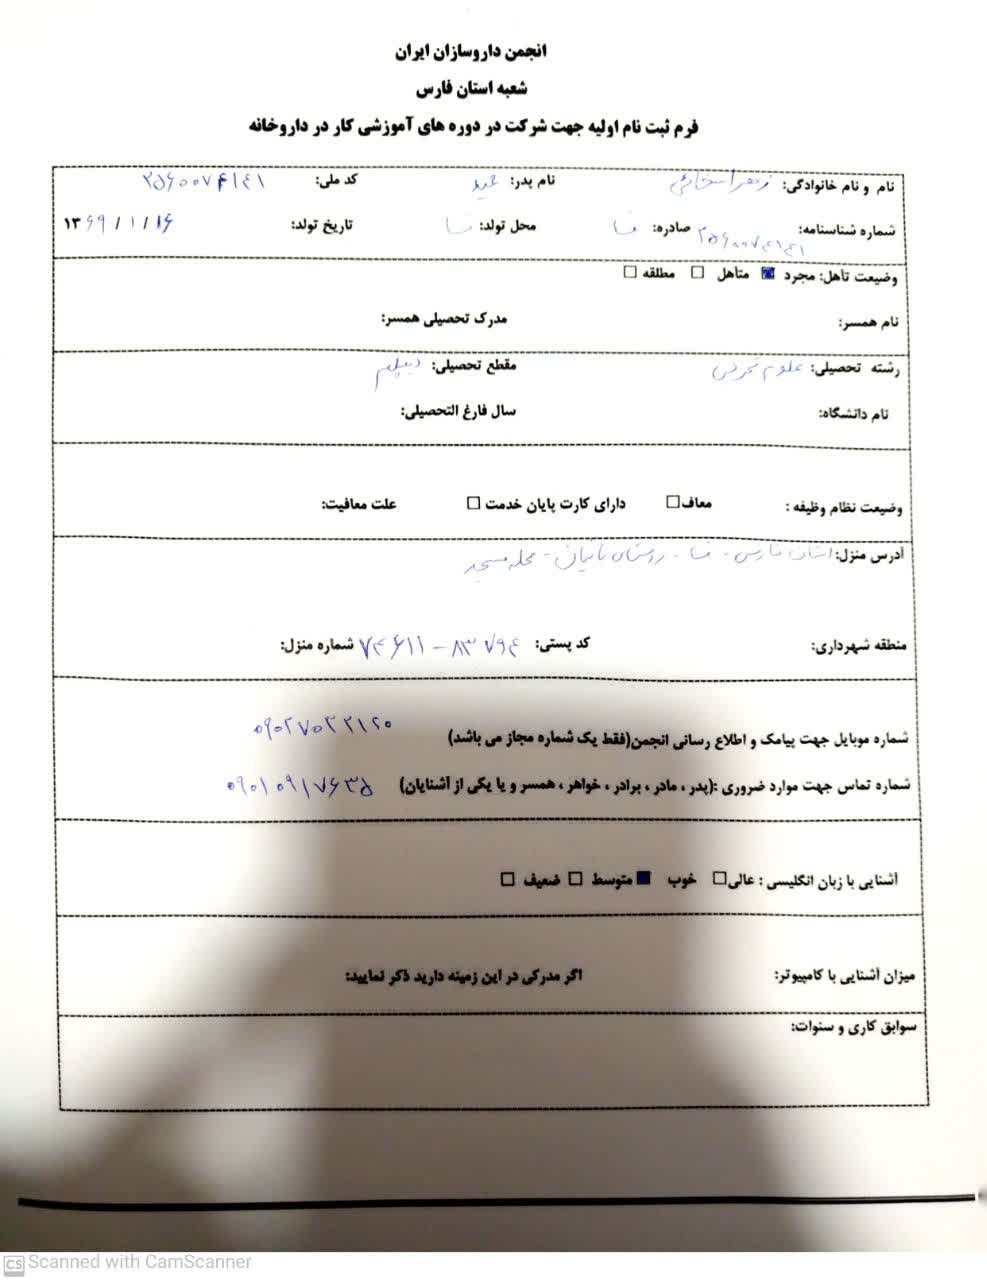 انجمن داروسازان ایران
شعبه استان فارس
فرم ثبت نام اولیه جهت شرکت در دوره های آموزشی کار در داروخانه
نام و نام خانوادگی: زهرا نام پدر: کد ملی: ۲۵۶۰۰۷۴۱۴۱
شماره شناسنامه: ۲۵۶۰۰۷۴۱۴۱ صادره: فسا محل تولد: فسا تاریخ تولد: ۱۶ / ۱ / ۱۳۶۹
وضعیت تأهل: مجرد متأهل مطلقه
نام همسر: مدرک تحصیلی همسر:
رشته تحصیلی: علوم تجربی مقطع تحصیلی: دیپلم
نام دانشگاه: سال فارغ التحصیلی:
وضعیت نظام وظیفه : معاف دارای کارت پایان خدمت علت معافیت:
آدرس منزل: استان فارس - فسا - روستای - محله مسجد
منطقه شهرداری: کد پستی: ۷۴۶۱۱ - ۸۳۷۹۴ شماره منزل:
شماره موبایل جهت پیامک و اطلاع رسانی انجمن(فقط یک شماره مجاز می باشد) ۰۹۰۲۷۵۳۲۱۲۰
شماره تماس جهت موارد ضروری :(پدر ، مادر ، برادر ، خواهر ، همسر و یا یکی از آشنایان) ۰۹۰۱۰۹۱۷۶۳۵
آشنایی با زبان انگلیسی : عالی خوب متوسط ضعیف
میزان آشنایی با کامپیوتر: اگر مدرکی در این زمینه دارید ذکر نمایید:
سوابق کاری و سنوات:
CS Scanned with CamScanner